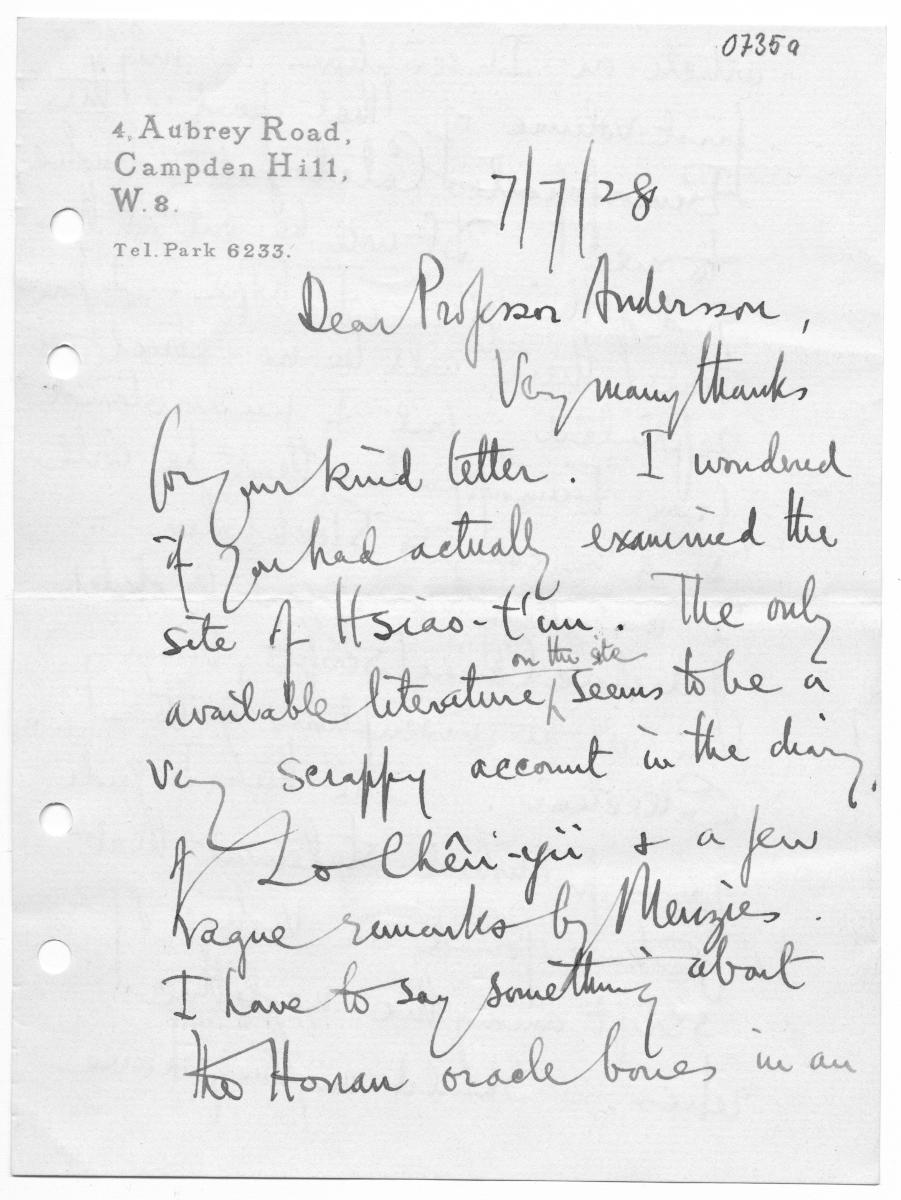 0735a
4, Aubrey Road,
Campden Hill,
W. 8.
Tel. Park 6233.
7/7/28
Dear Professor Andersson,
Very many thanks
for your kind letter. I wondered
if you had actually examined the
site of Hsiao-t'un. The only
on the site
available literature seems to be a
very scrappy account in the diary,
of Lo Chên-yü & a few
vague remarks by Menzies.
I have to say something about
the Honan oracle bones in an